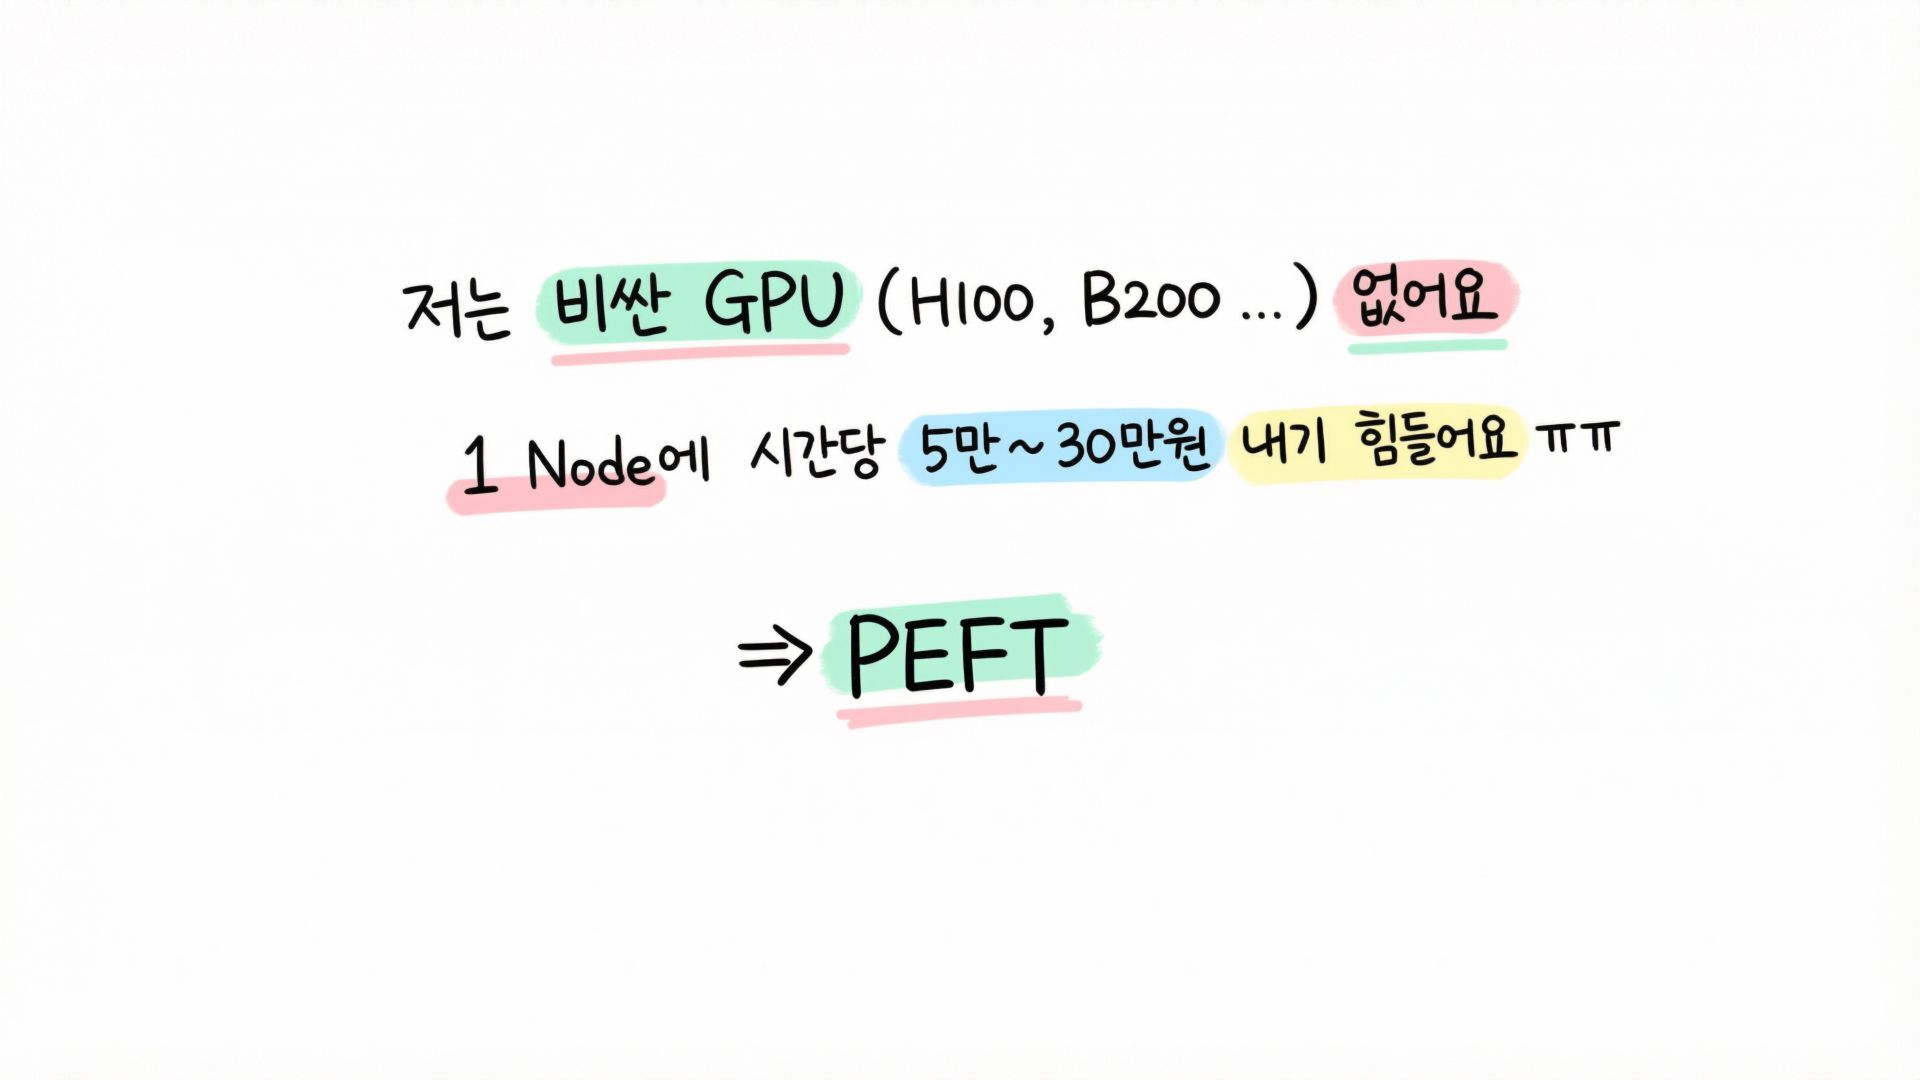 저는 비싼 GPU (H100, B200 ...) 없어요
1 Node에 시간당 5만~30만원 내기 힘들어요 ㅠㅠ
⇒ PEFT